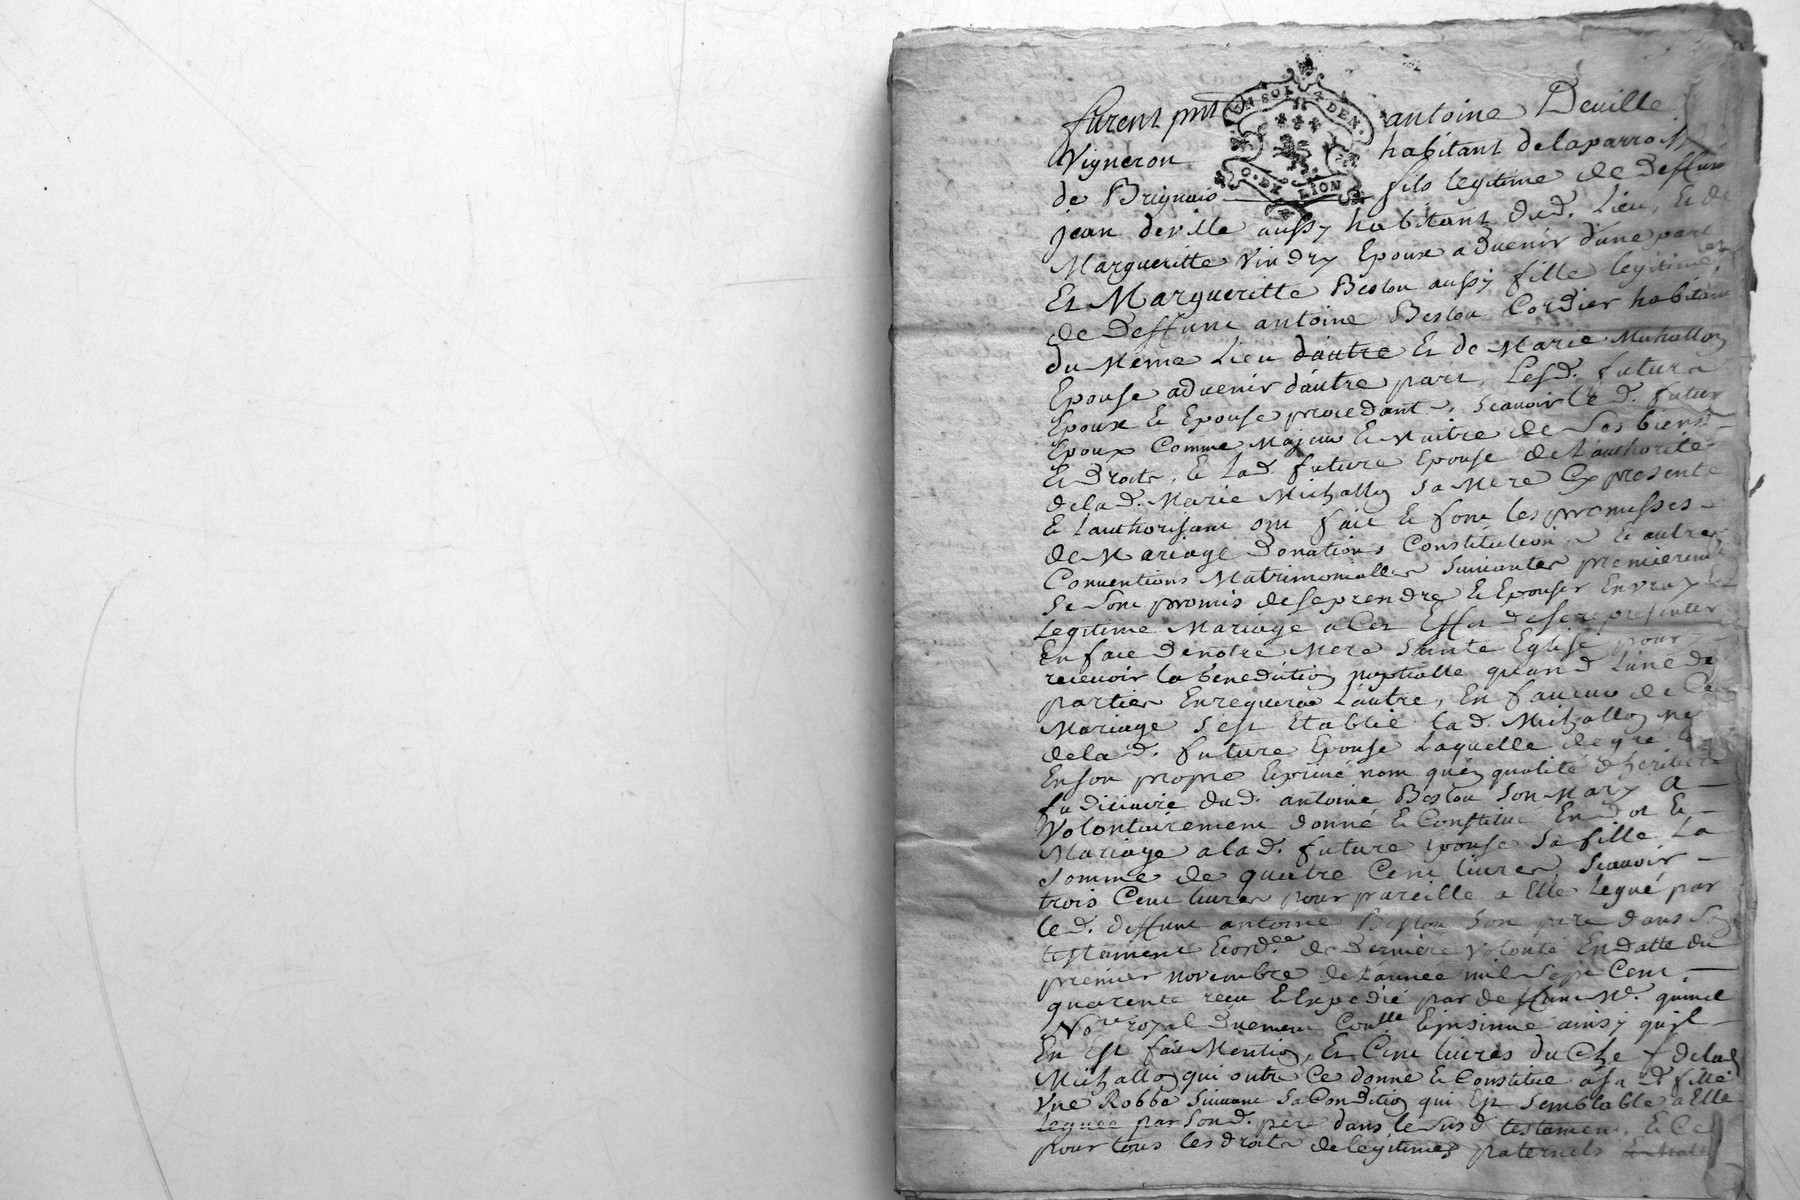 UN SOL 4 DEN.
G. DE LION
furent pnt antoine Deville
Vigneron habitant de la parroisse
de Brignais fils legitime de deffunt
jean deville aussy habitant dud. Lieu, Et de
Margueritte Vindry Epoux advenir d'une part
Et Margueritte Beslou aussy fille legitime
de Deffunt antoine Beslou Cordier habitant
du Meme Lieu d'autre Et de Marie Michallon
Epouse advenir d'autre part, Lesd. futurs
Epoux & Epouse procedant, scavoir le d. futur
Epoux Comme Majeur & Maitre de Ses biens
Et Droits, & Lad. future Epouse de L'authorité
de la d. Marie Michallon Sa Mere Cy presente
& L'authorisant ont fait & font les promesses
de Mariage Donations Constitution & autres
Conventions Matrimonialles suivantes premierement
Se Sont promis de se prendre & Epouser En vray &
Legitime Mariage a Cet Effet de se representer
En face de notre Mere Sainte Eglise pour
recevoir la benediction nuptialle quand L'une des
parties En requerra L'autre, En faveur de Ce
Mariage s'est Etablie lad. Michallon mere
de la d. future Epouse Laquelle de gré
En son propre & privé nom qu'en qualité d'heritiere
fiduciaire dud. antoine Beslou Son Mary A
Volontairement donné & Constitué En dot &
Mariage a la d. future epouse sa fille La
Somme de quatre Cent livres, Scavoir
trois Cent livres pour pareille a Elle Legué par
le d. deffunt antoine Beslou Son pere dans Son
testament & ord.ce de Derniere Volonté En datte du
premier novembre de L'année mil Sept Cent
quarente recu & Expedié par deffunt Me. quinet
No.re royal Duement Conllé & insinué ainsy qu'il
En Est fait Mention, Et Cent livres du Chef de lad.
Michallon qui outre Ce donne & Constitue a sa d. fille
Une Robbe Suivant Sa Condition qui Est Semblable a Elle
Leguée par Son d. pere dans le Susd. testament, & Ce
pour tous les droits de legitimes paternels